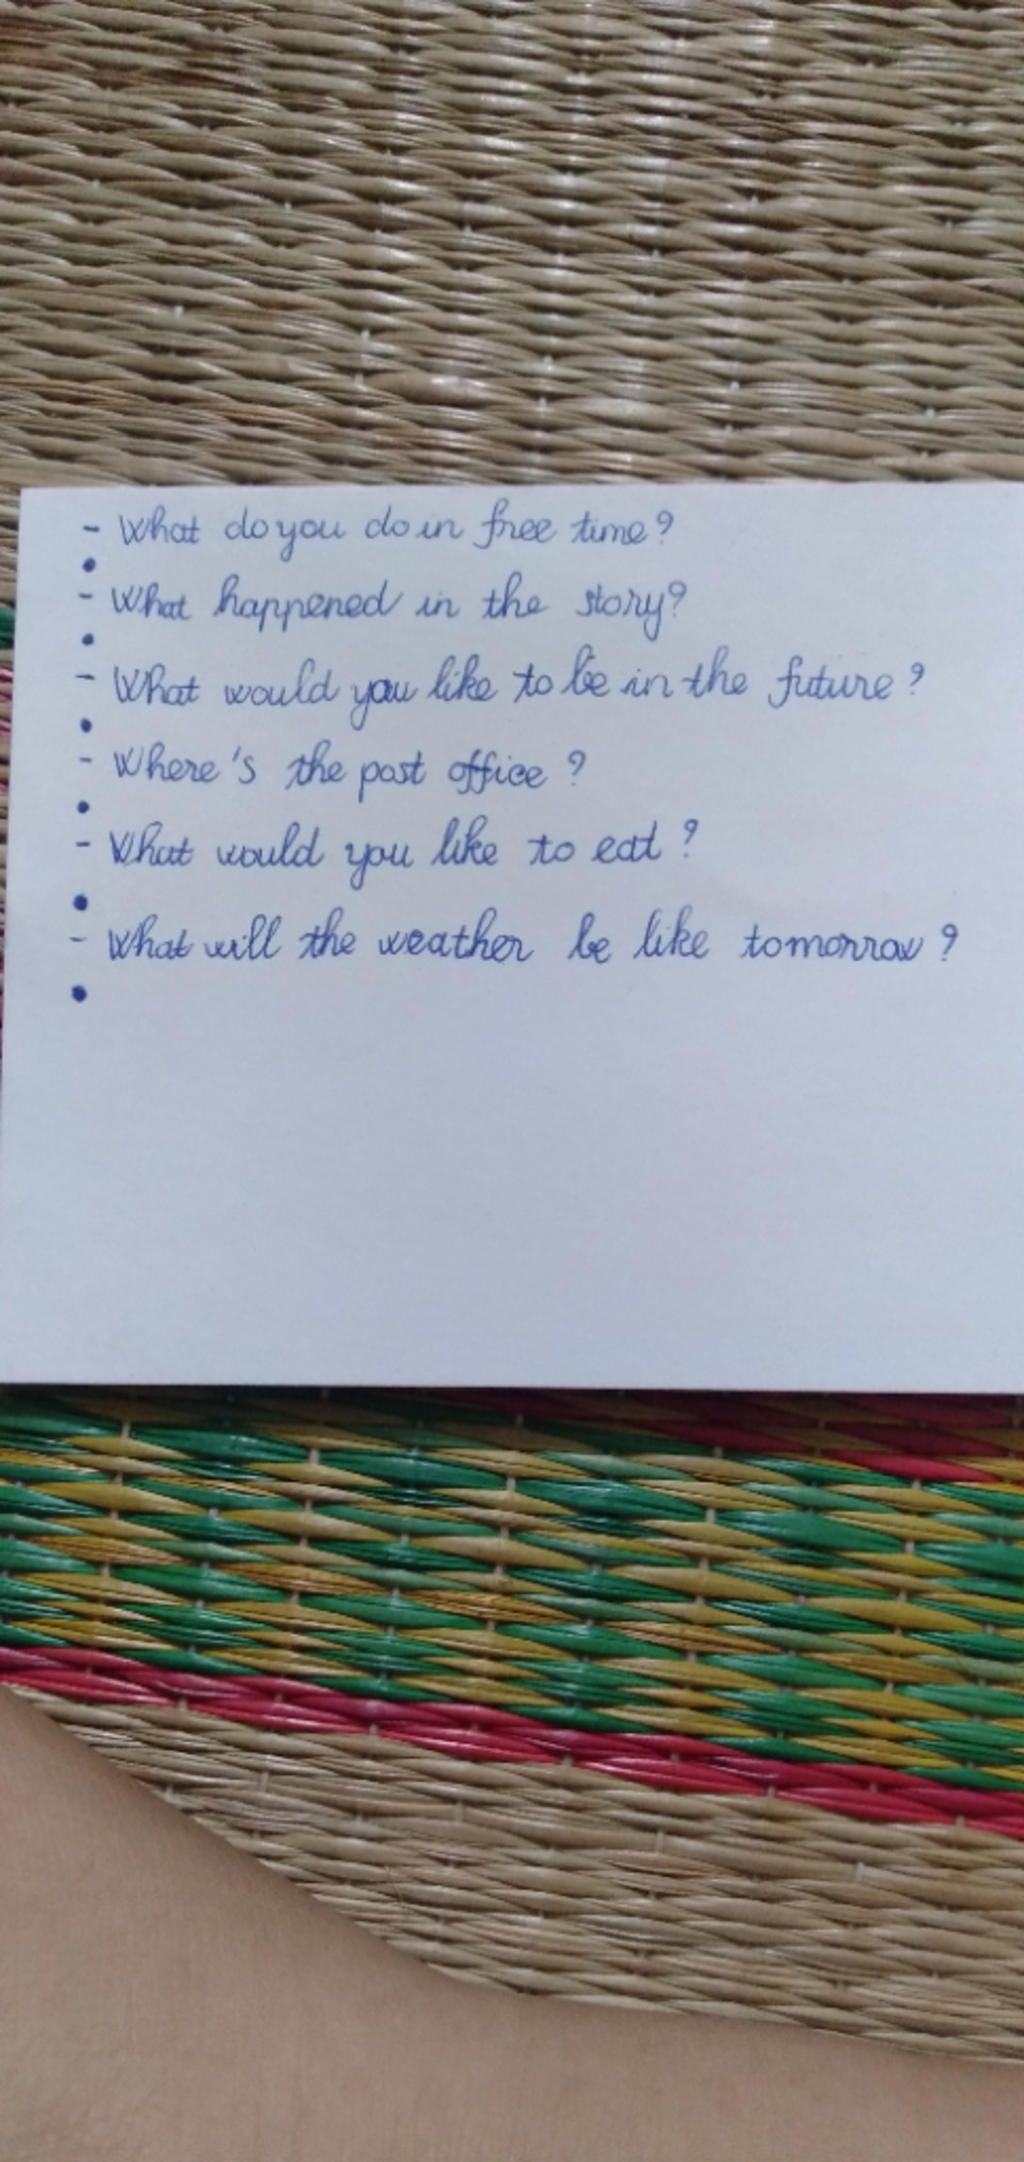 - What do you do in free time?
•
- What happened in the story?
•
- What would you like to be in the future?
•
- Where's the post office?
•
- What would you like to eat?
•
- What will the weather be like tomorrow?
•